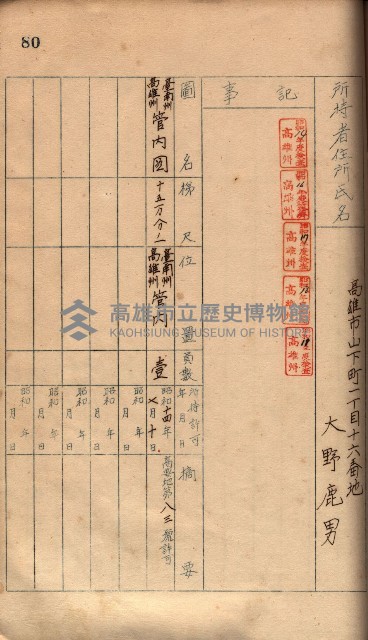 80
所持者住所氏名
高雄市山下町一丁目十六番地
大野鹿男
記事
昭和14年度檢查
高雄州
高雄州
高雄州
高雄州
高雄州
圖名
梯尺
位置
員數
所持許可年月日
摘要
臺南州
高雄州
管内圖
十五万分ノ一
臺南州
高雄州
管内
壹
昭和十四年
七月十日
高要地第八三號許可
昭和 年 月 日
昭和 年 月 日
昭和 年 月 日
昭和 年 月 日
昭和 年 月 日
高雄市立歷史博物館
KAOHSIUNG MUSEUM OF HISTORY